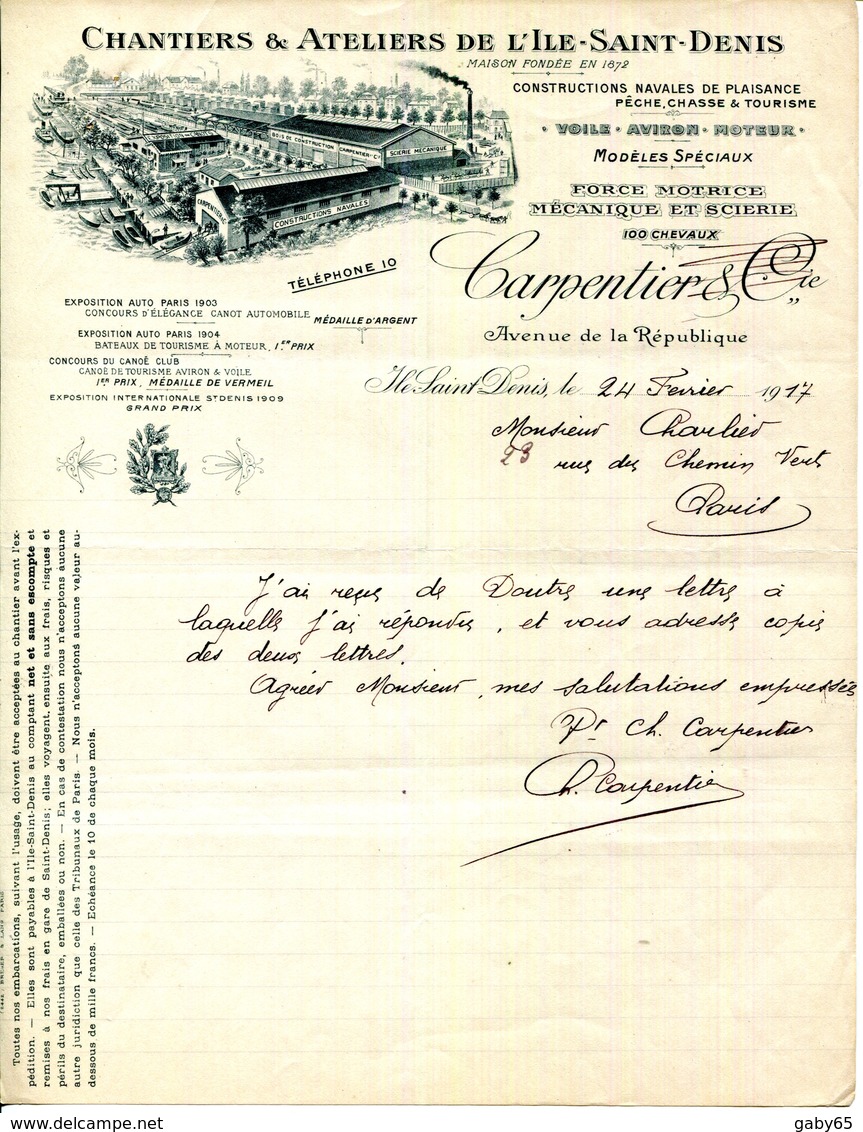 CHANTIERS & ATELIERS DE L'ILE-SAINT-DENIS
MAISON FONDÉE EN 1872
CONSTRUCTIONS NAVALES DE PLAISANCE
PÊCHE, CHASSE & TOURISME
VOILE · AVIRON · MOTEUR
MODÈLES SPÉCIAUX
FORCE MOTRICE
MÉCANIQUE ET SCIERIE
100 CHEVAUX
BOIS DE CONSTRUCTION CARPENTIER & Cie
SCIERIE MÉCANIQUE
CARPENTIER & Cie
CONSTRUCTIONS NAVALES
TÉLÉPHONE 10
Carpentier & Cie
Avenue de la République
EXPOSITION AUTO PARIS 1903
CONCOURS D'ÉLÉGANCE CANOT AUTOMOBILE
MÉDAILLE D'ARGENT
EXPOSITION AUTO PARIS 1904
BATEAUX DE TOURISME À MOTEUR, 1.ER PRIX
CONCOURS DU CANOË CLUB
CANOË DE TOURISME AVIRON & VOILE
1ER PRIX, MÉDAILLE DE VERMEIL
EXPOSITION INTERNATIONALE ST DENIS 1909
GRAND PRIX
Ile Saint-Denis, le 24 Fevrier 1917
Monsieur Charlier
23 rue du Chemin Vert
Paris
J'ai reçu de Doutre une lettre à
laquelle j'ai répondu, et vous adresse copie
des deux lettres.
Agréez Monsieur, mes salutations empressées
Pr Ch. Carpentier
Ch. Carpentier
Toutes nos embarcations, suivant l'usage, doivent être acceptées au chantier avant l'ex-
pédition. — Elles sont payables à l'Ile-Saint-Denis au comptant net et sans escompte et
remises à nos frais en gare de Saint-Denis; elles voyagent, ensuite aux frais, risques et
périls du destinataire, emballées ou non. — En cas de contestation nous n'acceptons aucune
autre juridiction que celle des Tribunaux de Paris. — Nous n'acceptons aucune valeur au-
dessous de mille francs. — Echéance le 10 de chaque mois.
delcampe.net
gaby65